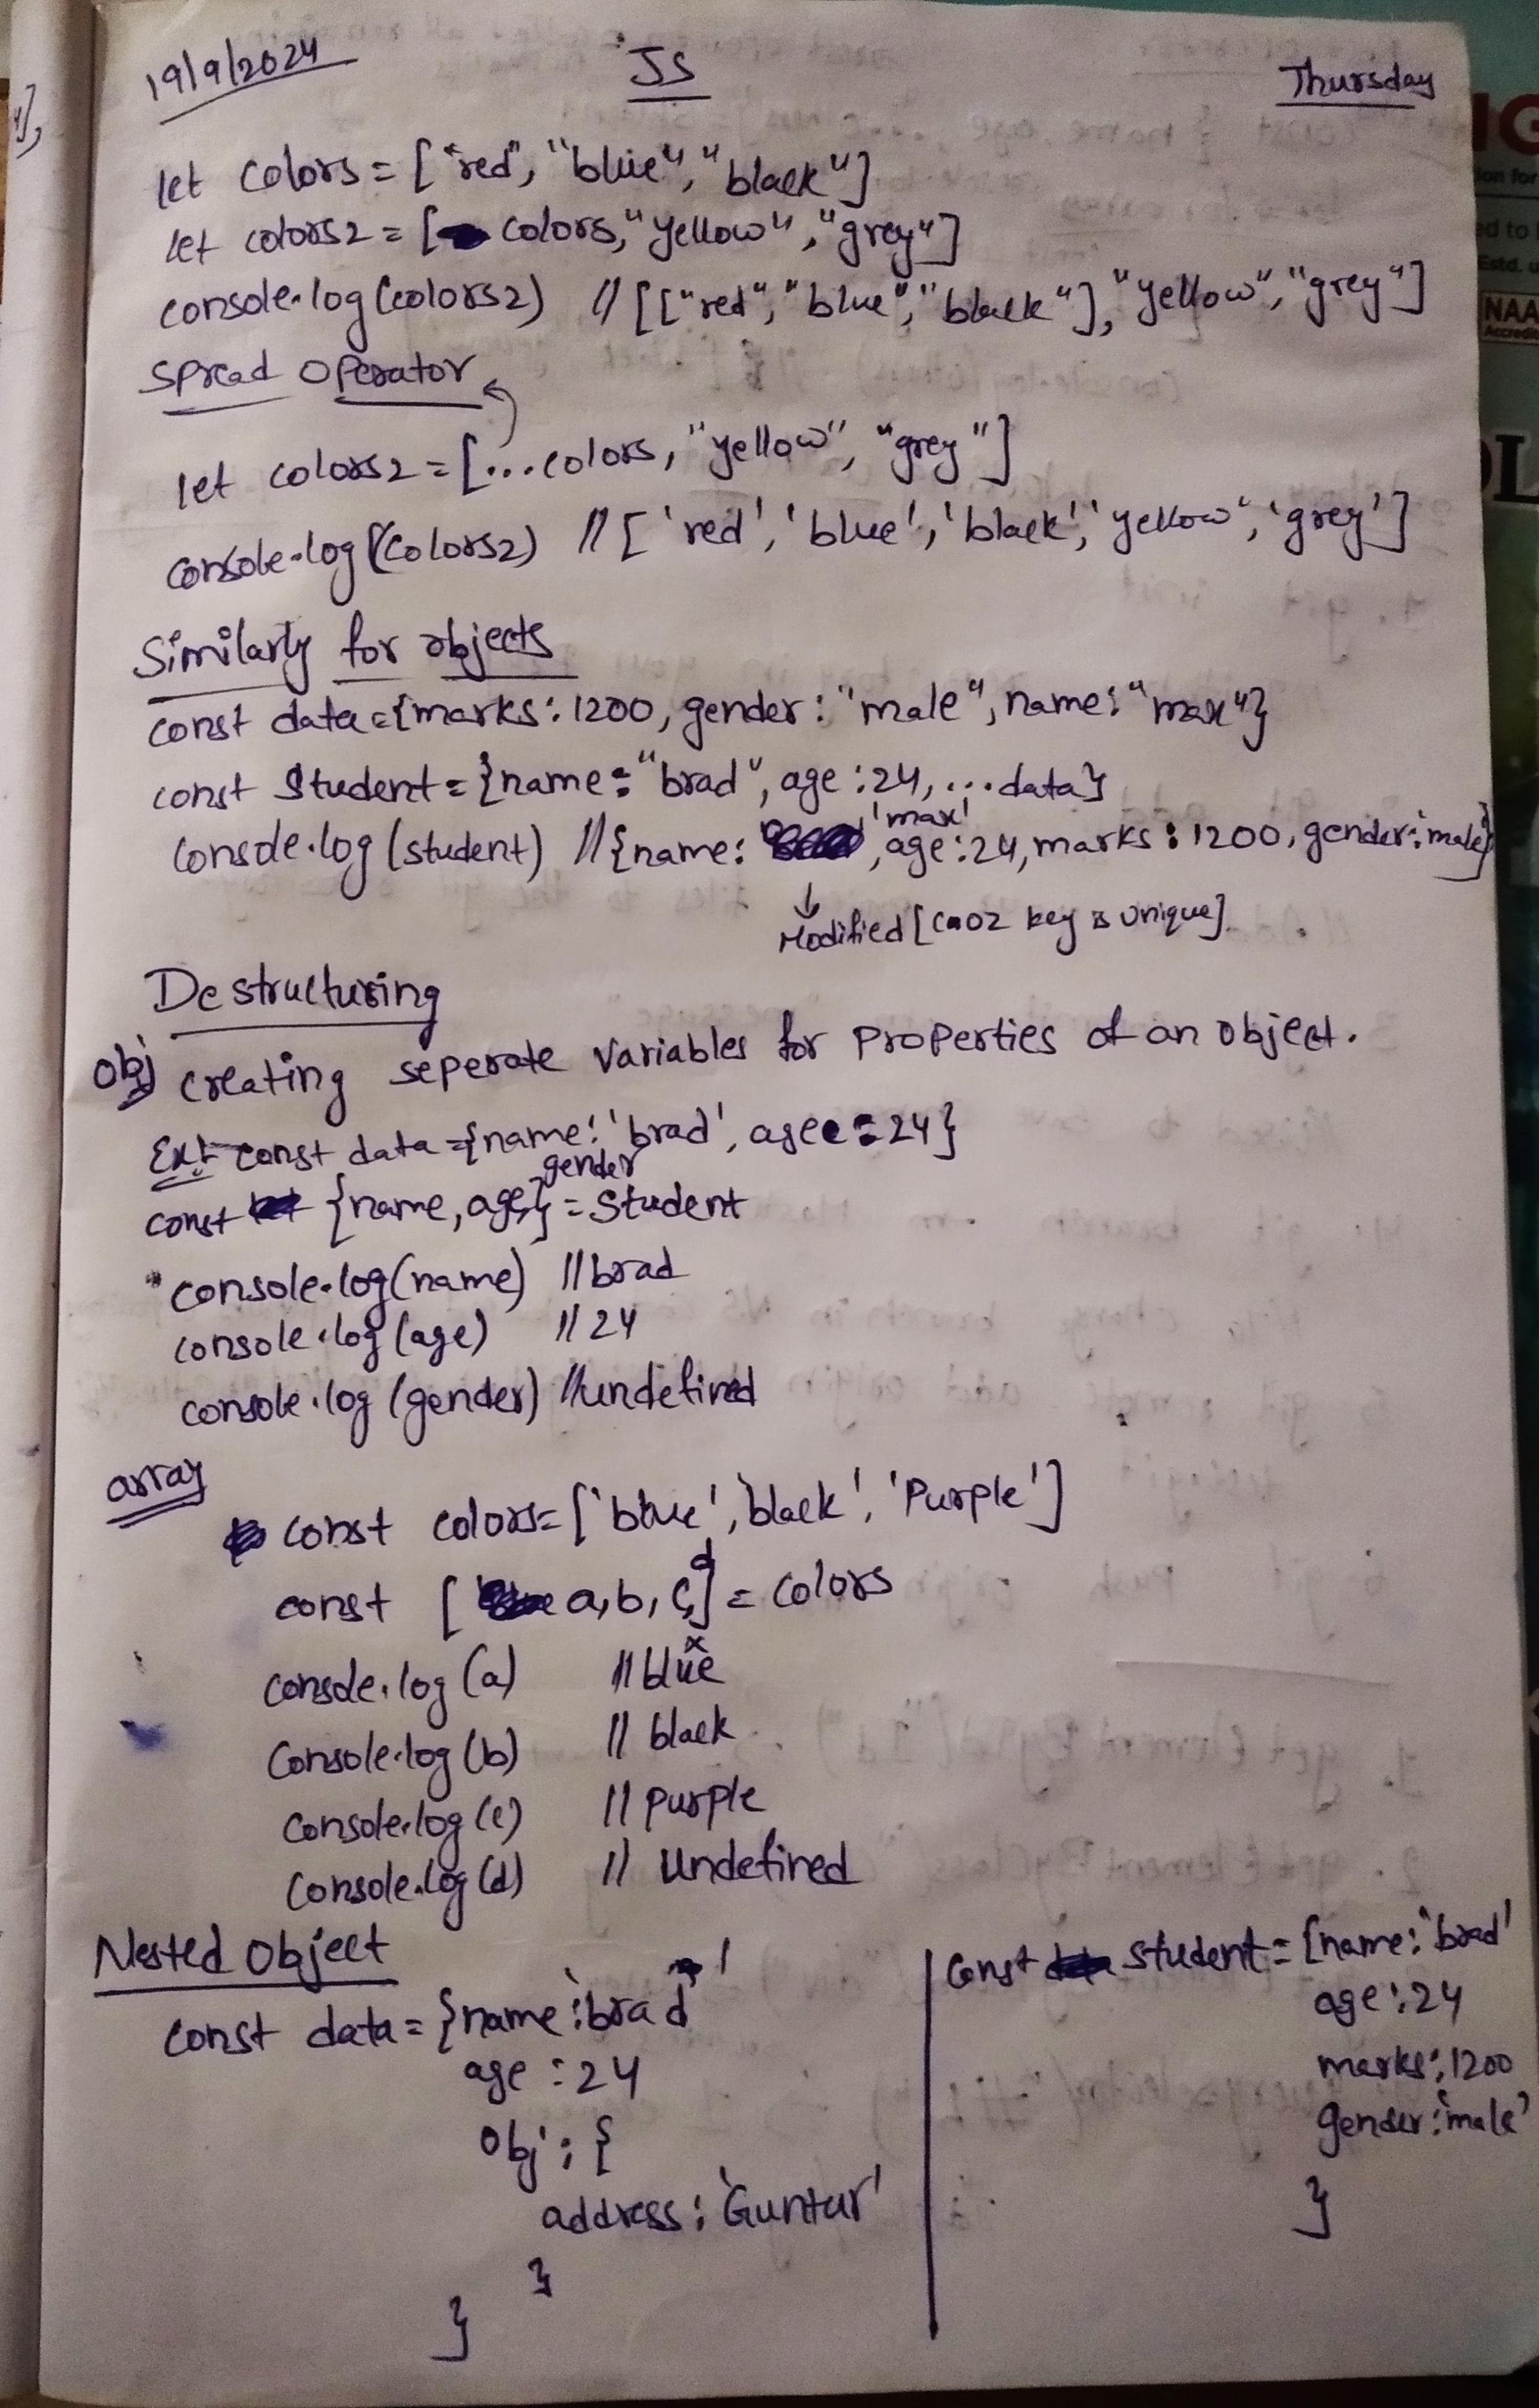 19/9/2024 JS Thursday
let colors = ["red", "blue", "black"]
let colors2 = [colors, "yellow", "grey"]
console.log(colors2) // [["red", "blue", "black"], "yellow", "grey"]
Spread operator
let colors2 = [...colors, "yellow", "grey"]
console.log(colors2) // ['red', 'blue', 'black', 'yellow', 'grey']
Similarly for objects
const data = {marks: 1200, gender: "male", name: "max"}
const Student = {name: "brad", age: 24, ...data}
console.log(student) // {name: 'max', age: 24, marks: 1200, gender: 'male'}
Modified [Coz key is unique]
Destructuring
obj creating seperate variables for properties of an object.
Ex:- const data = {name: 'brad', age: 24}
const {name, age, gender} = Student
console.log(name) // brad
console.log(age) // 24
console.log(gender) // undefined
array
const colors = ['blue', 'black', 'Purple']
const [a, b, c, d] = colors
console.log(a) // blue
console.log(b) // black
console.log(c) // purple
console.log(d) // Undefined
Nested Object
const data = {name: 'brad'
age : 24
obj : {
address : 'Guntur'
}
}
const student = {name: 'brad'
age : 24
marks : 1200
gender : 'male'
}
NAA